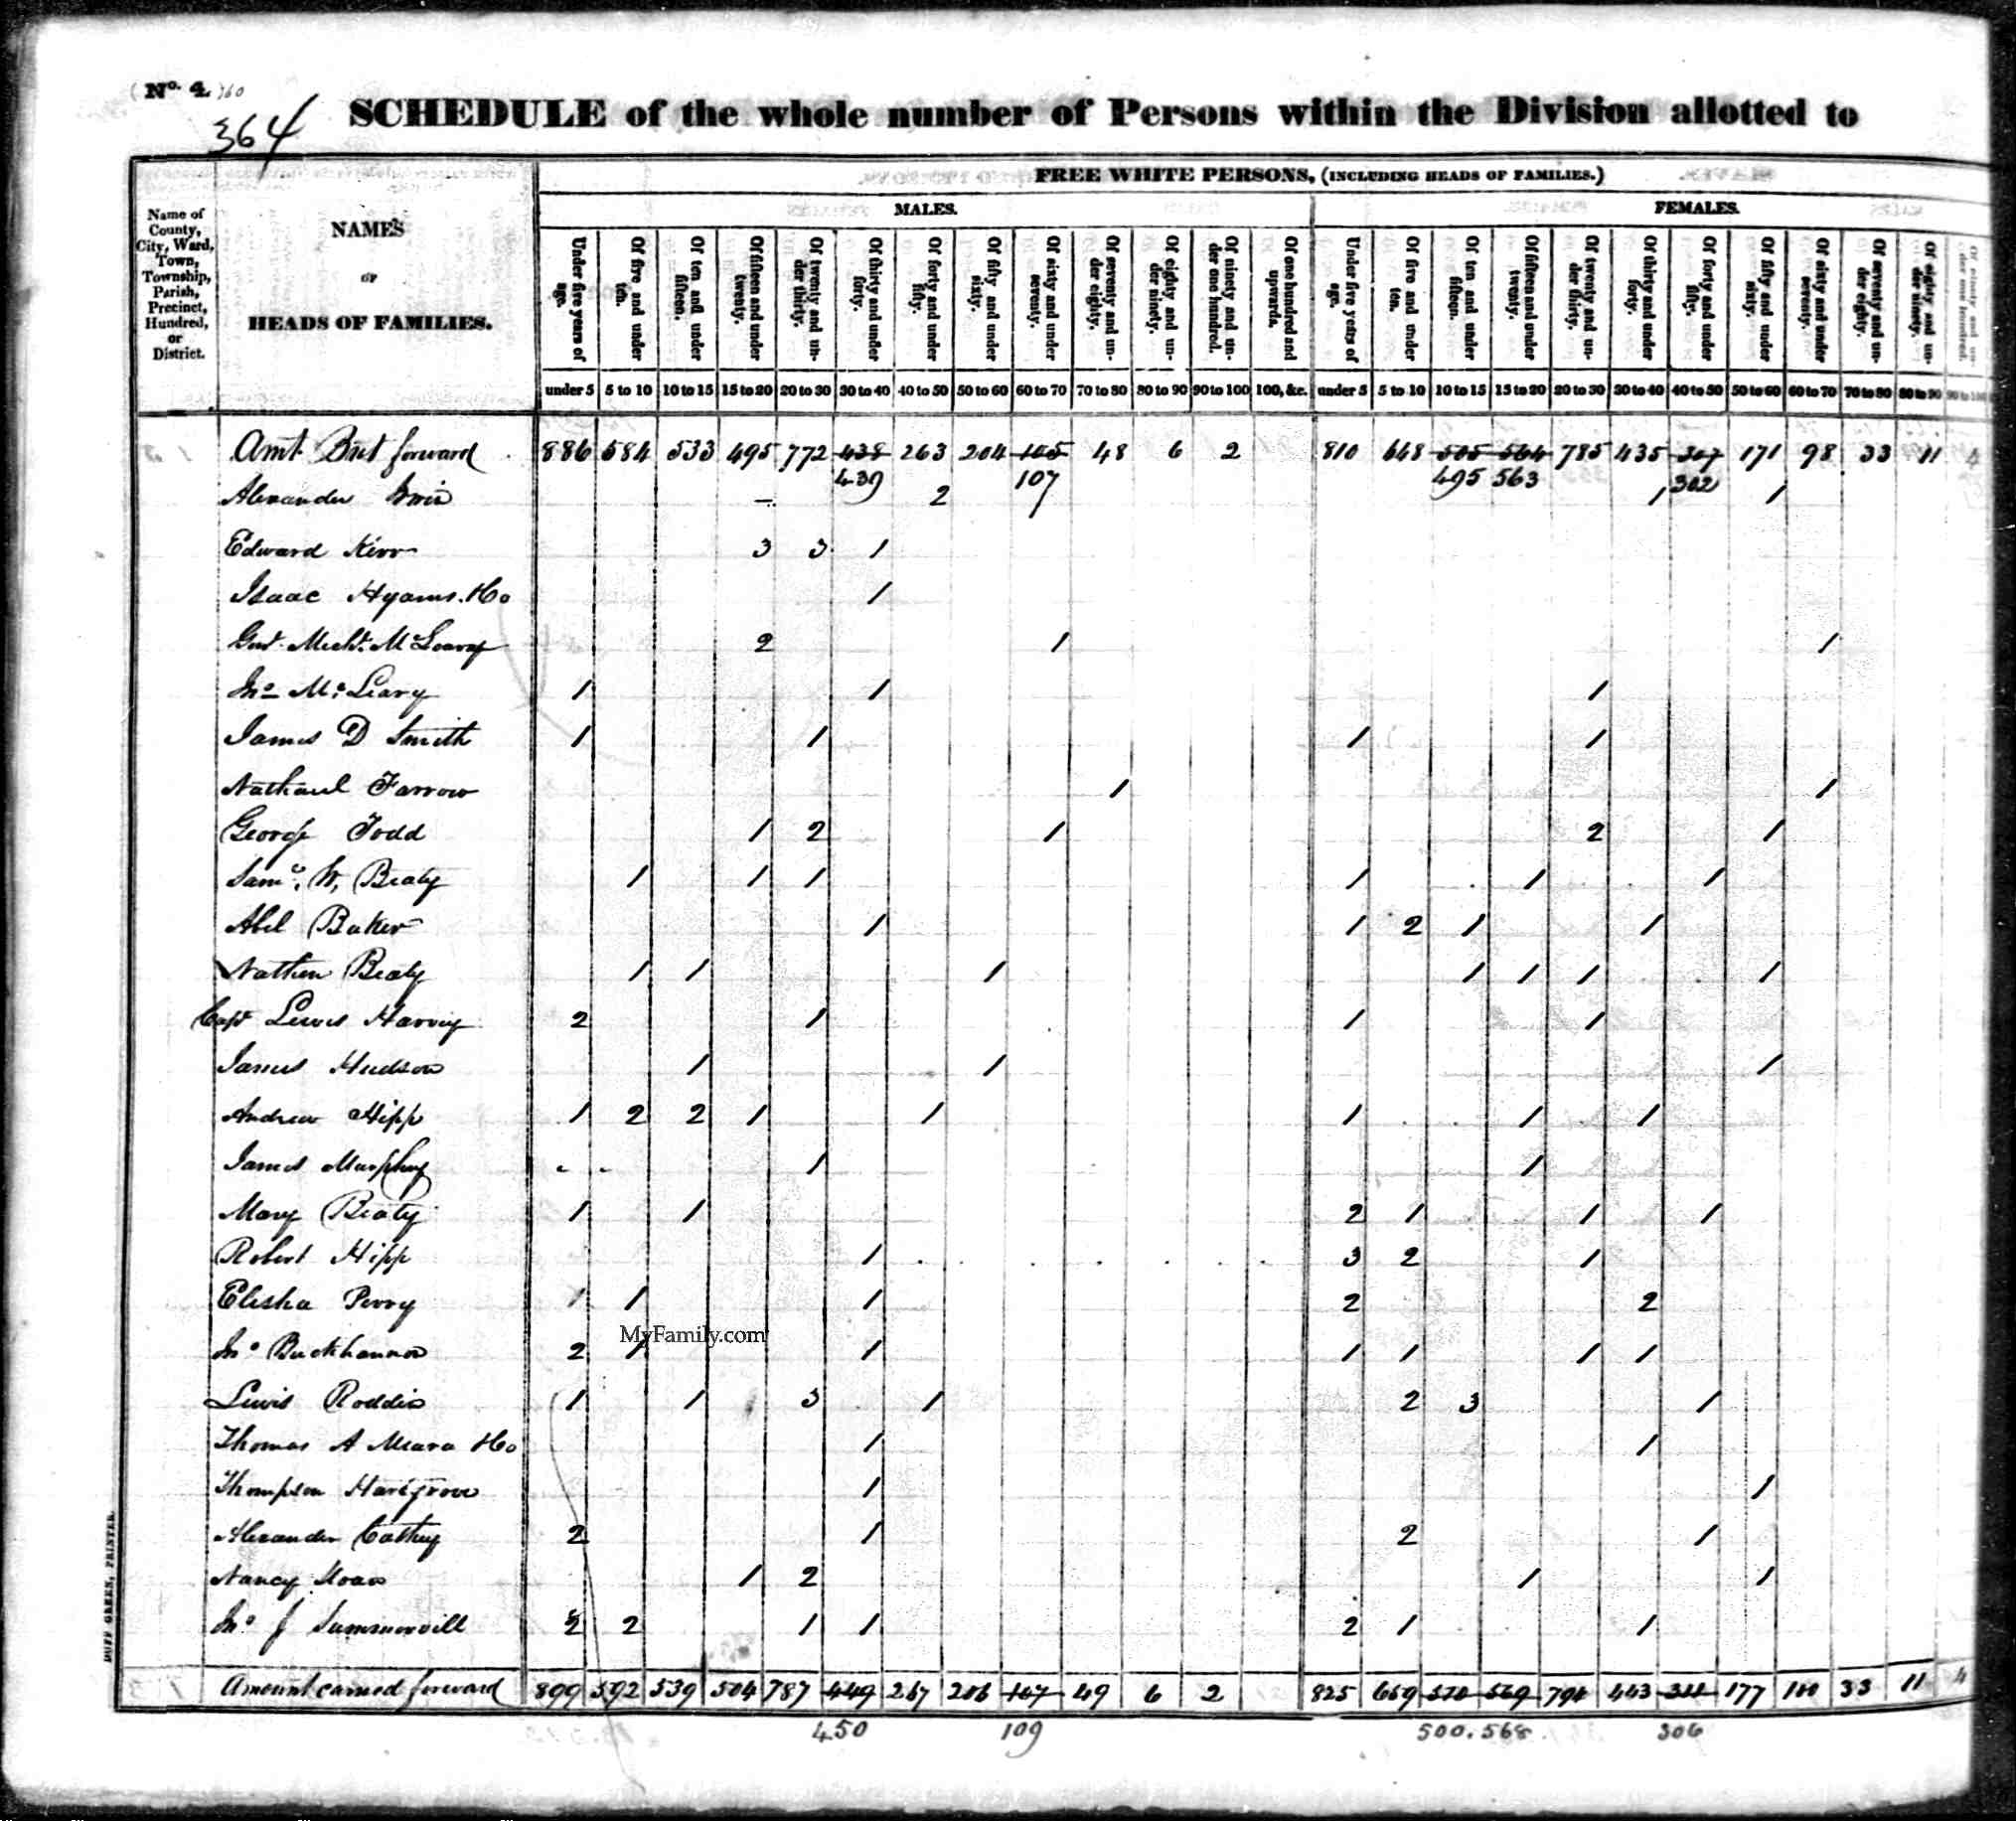 (No. 4.)
364
SCHEDULE of the whole number of Persons within the Division allotted to
FREE WHITE PERSONS, (INCLUDING HEADS OF FAMILIES.)
MALES. FEMALES.
Name of County, City, Ward, Town, Township, Parish, Precinct, Hundred, or District.
NAMES
OF
HEADS OF FAMILIES.
Under five years of age. Of five and under ten. Of ten and under fifteen. Of fifteen and under twenty. Of twenty and under thirty. Of thirty and under forty. Of forty and under fifty. Of fifty and under sixty. Of sixty and under seventy. Of seventy and under eighty. Of eighty and under ninety. Of ninety and under one hundred. Of one hundred and upwards. Under five years of age. Of five and under ten. Of ten and under fifteen. Of fifteen and under twenty. Of twenty and under thirty. Of thirty and under forty. Of forty and under fifty. Of fifty and under sixty. Of sixty and under seventy. Of seventy and under eighty. Of eighty and under ninety. Of ninety and under one hundred.
under 5 5 to 10 10 to 15 15 to 20 20 to 30 30 to 40 40 to 50 50 to 60 60 to 70 70 to 80 80 to 90 90 to 100 100, &c. under 5 5 to 10 10 to 15 15 to 20 20 to 30 30 to 40 40 to 50 50 to 60 60 to 70 70 to 80 80 to 90 90 to 100
Amt. Brt forward 886 584 533 495 772 438 263 204 105 48 6 2 810 648 505 564 785 435 307 171 98 33 11 4
439 107 495 563 302
Alexander 2 1 1 1
Edward Kerr 3 3 1
Isaac Hyams. 1
2 1 1
Jno McLeary 1 1 1
James D Smith 1 1 1 1
Nathaniel Farrow 1 1
George Todd 1 2 1 2 1
W, Beaty 1 1 1 1 1 1
Abel Baker 1 1 2 1 1
Nathan Beaty 1 1 1 1 1 1 1
Capt Lewis Harvey 2 1 1 1
James Hudson 1 1 1
Andrew Hipp 1 2 2 1 1 1 1 1
James Murphey 1 1
Mary Beaty 1 1 2 1 1 1
Robert Hipp 1 3 2 1
Elisha Perry 1 1 1 2 2
MyFamily.com
Jno Buckhannon 2 1 1 1 1 1 1
Lewis Roddin 1 1 3 1 2 3 1
Thomas A 1 1
Thompson Hartgrove 1 1
Alexander Cathey 2 1 2 1
Nancy 1 2 1 1
Jno J Summervill 2 2 1 1 2 1 1
Amount carried forward 899 592 539 504 787 449 267 206 107 49 6 2 825 659 510 569 794 443 311 177 100 33 11 4
450 109 500. 568 306
DUFF GREEN, PRINTER.